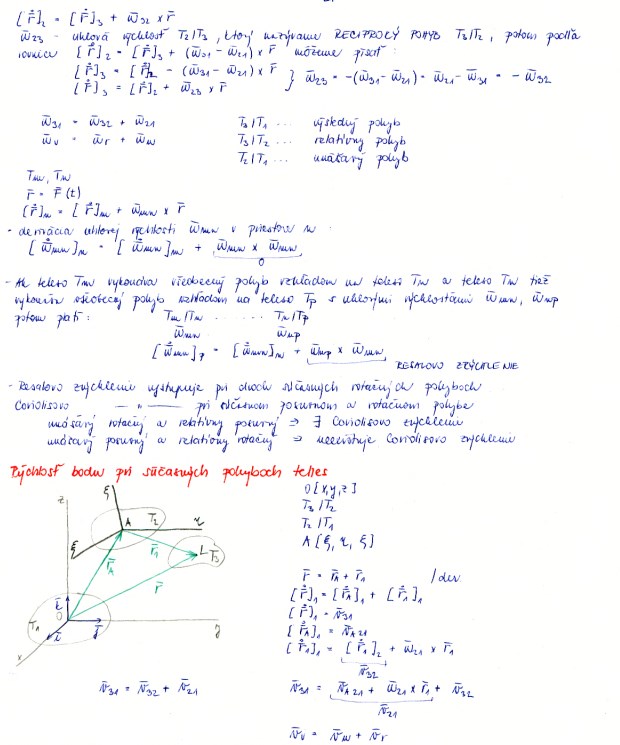 [r̊]₂ = [r̊]₃ + ω̄₃₂ × r̄
ω̄₂₃ - uhlová rýchlosť T₂/T₃, ktorý nazývame RECIPROCÝ POHYB T₃/T₂, potom podľa
rovnice [r̊]₂ = [r̊]₃ + (ω̄₃₁ - ω̄₂₁) × r̄ môžeme písať:
[r̊]₃ = [r̊]₂ - (ω̄₃₁ - ω̄₂₁) × r̄ } ω̄₂₃ = -(ω̄₃₁ - ω̄₂₁) = ω̄₂₁ - ω̄₃₁ = - ω̄₃₂
[r̊]₃ = [r̊]₂ + ω̄₂₃ × r̄
ω̄₃₁ = ω̄₃₂ + ω̄₂₁ T₃/T₁ ... výsledný pohyb
ω̄v = ω̄r + ω̄u T₃/T₂ ... relatívny pohyb
T₂/T₁ ... unášavý pohyb
Tm, Tn
r̄ = r̄(t)
[r̊]n = [r̊]m + ω̄mn × r̄
- derivácia uhlovej rýchlosti ω̄mn v priestore n:
[ω̊mn]n = [ω̊mn]m + ω̄mn × ω̄mn
0
- Ak teleso Tm vykonáva všeobecný pohyb vzhľadom na teleso Tn a teleso Tn tiež
vykonáva všeobecný pohyb vzhľadom na teleso Tp s uhlovými rýchlosťami ω̄mn, ω̄np
potom platí: Tm/Tn ........ Tn/Tp
ω̄mn ω̄np
[ω̊mn]p = [ω̊mn]n + ω̄np × ω̄mn
RESALOVO ZRÝCHLENIE
- Resalovo zrýchlenie vystupuje pri dvoch súčasných rotačných pohyboch
Coriolisovo —"— pri súčasnom posuvnom a rotačnom pohybe
unášavý rotačný a relatívny posuvný ⇒ ∃ Coriolisovo zrýchlenie
unášavý posuvný a relatívny rotačný ⇒ neexistuje Coriolisovo zrýchlenie
Rýchlosť bodu pri súčasných pohyboch telies
z ξ A T₂ η ξ r̄A r̄₁ L T₃ r̄
T₁ k̄ 0 ī j̄ x y
0 [x, y, z]
T₃/T₂
T₂/T₁
A [ξ, η, ξ]
r̄ = r̄A + r̄₁ /der.
[r̊]₁ = [r̊A]₁ + [r̊₁]₁
[r̊]₁ = v̄₃₁
[r̊A]₁ = v̄A₂₁
[r̊₁]₁ = [r̊₁]₂ + ω̄₂₁ × r̄₁
v̄₃₂
v̄₃₁ = v̄₃₂ + v̄₂₁
v̄₃₁ = v̄A₂₁ + ω̄₂₁ × r̄₁ + v̄₃₂
v̄₂₁
v̄v = v̄u + v̄r